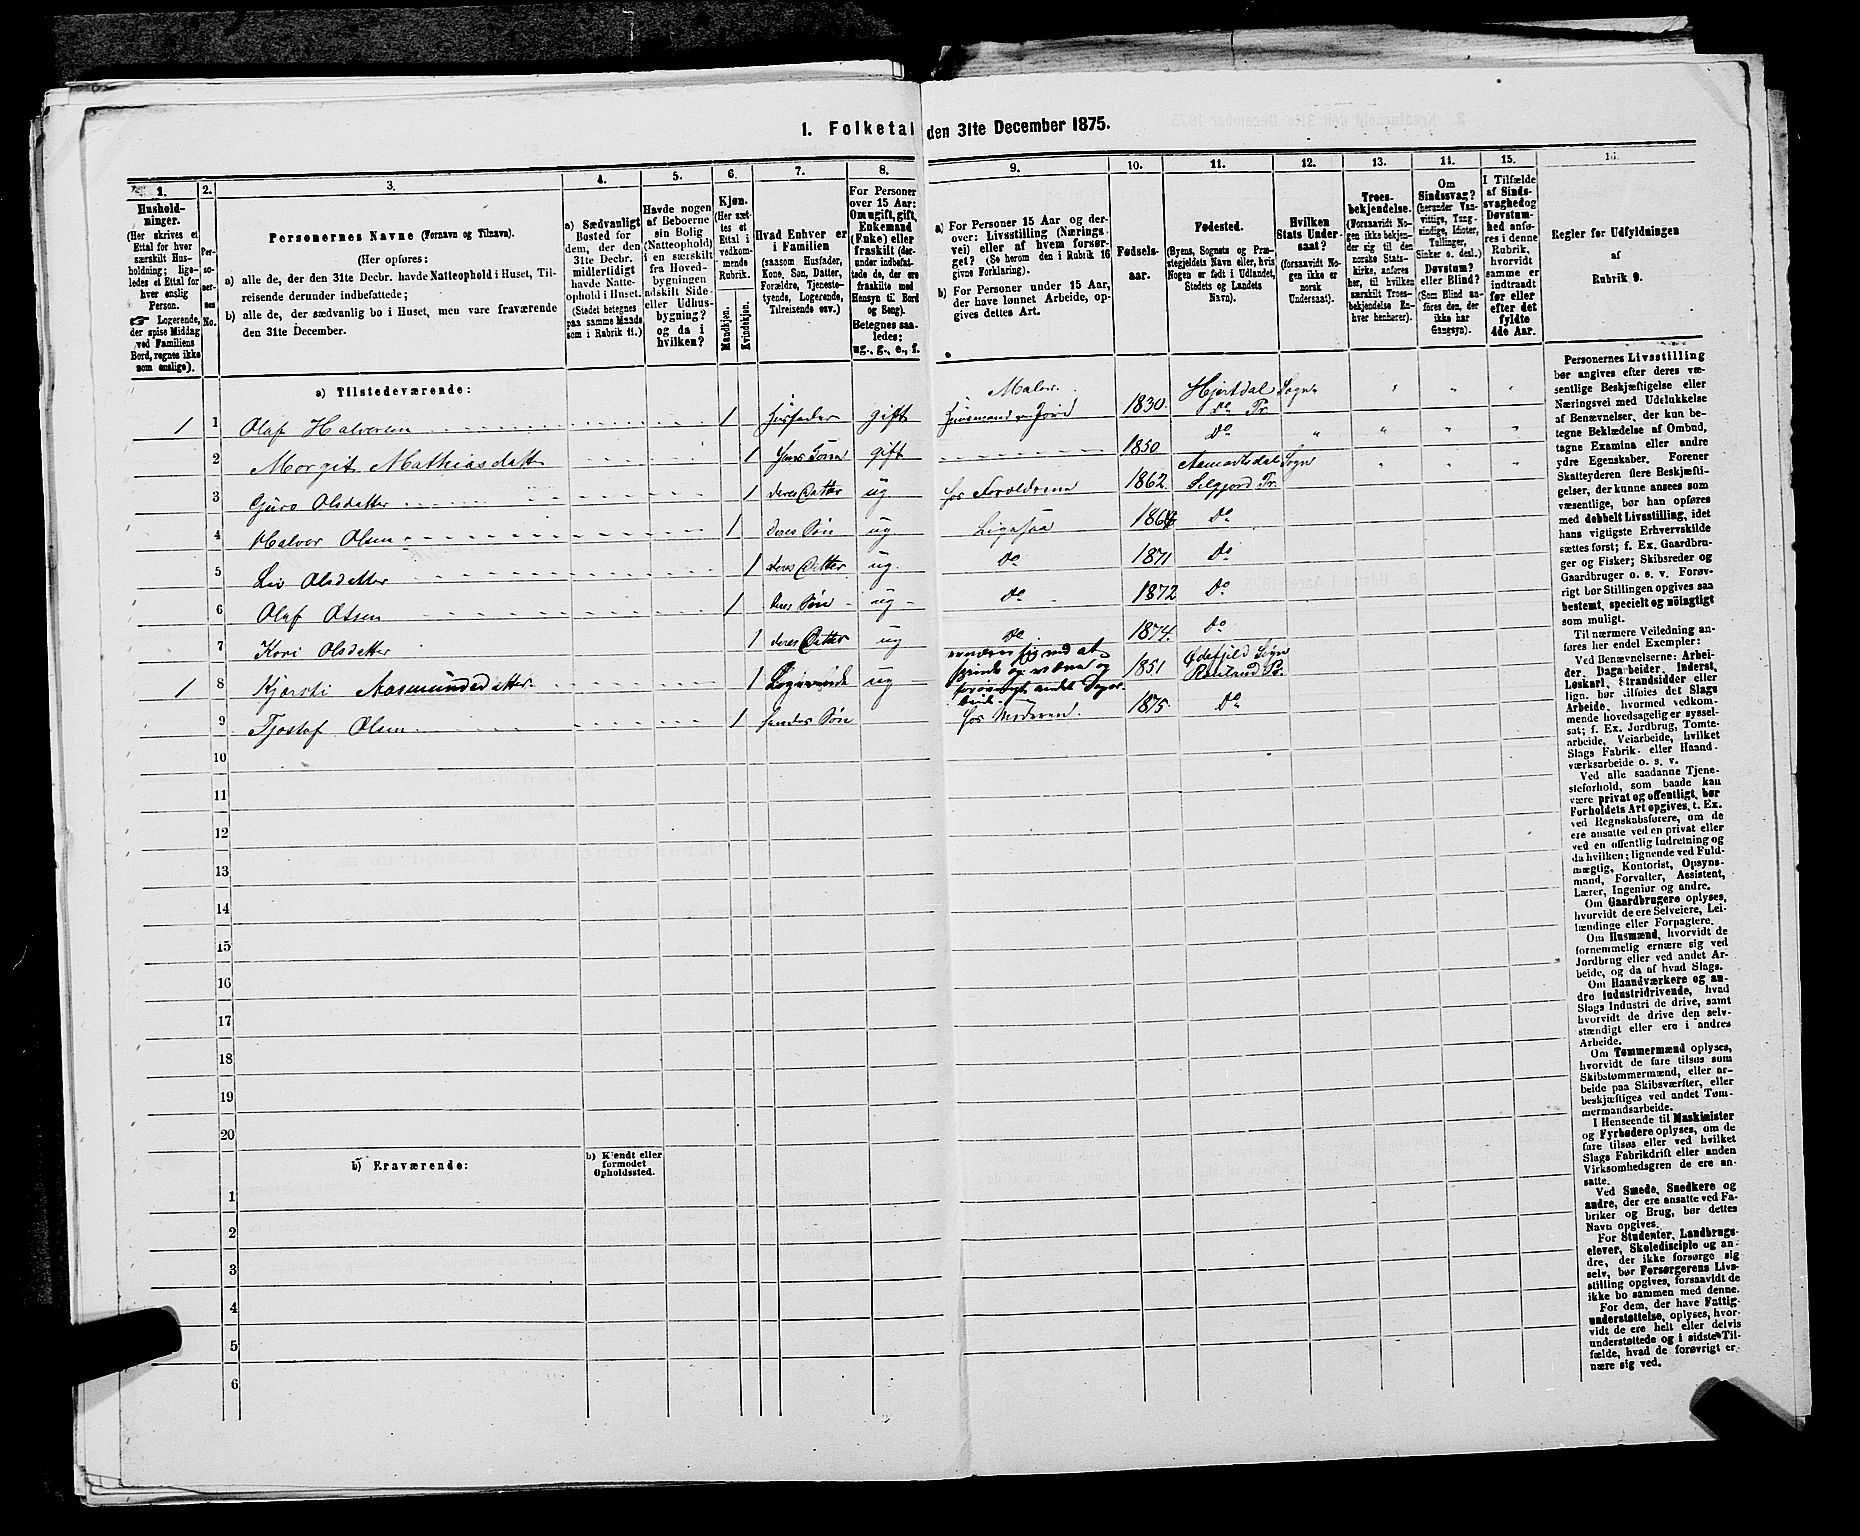 1. Folketal den 31te December 1875.
1.
Hushold-
ninger.
(Her skrives et
Ettal for hver
særskilt Hus-
holdning; lige-
ledes et Ettal for
hver enslig
Person.
☞ Logerende,
der spise Middag
ved Familiens
Bord, regnes ikke
som enslige).
2.
Per-
so-
ner-
nes
No.
3.
Personernes Navne (Fornavn og Tilnavn).
(Her opføres:
a) alle de, der den 31te Decbr. havde Natteophold i Huset, Til-
reisende derunder indbefattede;
b) alle de, der sædvanlig bo i Huset, men vare fraværende
den 31te December.
4.
a) Sædvanligt
Bosted for
dem, der den
31te Decbr.
midlertidigt
havde Natte-
ophold i Huset.
(Stedet betegnes
paa samme Maade
som i Rubrik 11.)
5.
Havde nogen
af Beboerne
sin Bolig
(Natteophold)
i en særskilt
fra Hoved-
bygningen
adskilt Side-
eller Udhus-
bygning?
og da i
hvilken?
6.
Kjøn.
(Her sæt-
tes et
Ettal i
vedkom-
mende
Rubrik.
Mandkjøn.
Kvindekjøn.
7.
Hvad Enhver er
i Familien
(saasom Husfader,
Kone, Søn, Datter,
Forældre, Tjeneste-
tyende, Logerende,
Tilreisende osv.)
8.
For Personer
over 15 Aar:
Om ugift, gift,
Enkemand
(Enke) eller
fraskilt (der-
under indbefat-
tede de, der ere
fraskilte med
Hensyn til Bord
og Seng).
Betegnes saa-
ledes:
ug., g., e., f.
9.
a) For Personer 15 Aar og der-
over: Livsstilling (Nærings-
vei) eller af hvem forsør-
get? (Se herom den i Rubrik 16
givne Forklaring).
b) For Personer under 15 Aar,
der have lønnet Arbeide, op-
gives dettes Art.
10.
Fødsels-
aar.
11.
Fødested.
(Byens, Sognets og Præ-
stegjeldets Navn eller, hvis
Nogen er født i Udlandet,
Stedets og Landets
Navn).
12.
Hvilken
Stats Under-
saat?
(forsaavidt No-
gen ikke er
norsk
Undersaat).
13.
Troes-
bekjendelse.
(Forsaavidt No-
gen ikke bekjen-
der sig til den
norske Stats-
kirke, anføres
her, til hvilken
særskilt Troes-
bekjendelse En-
hver henhører).
11.
Om
Sindssvag?
(herunder Van-
vittige, Tung-
sindige, Idioter,
Tullinger,
Sinker o. desl.)
Døvstum?
eller Blind?
(Som Blind an-
føres den, der
ikke har
Gangsyn).
15.
I Tilfælde
af Sinds-
svaghed og
Døvstum-
hed anfø-
res i denne
Rubrik,
hvorvidt
samme er
indtraadt
før eller
efter det
fyldte
4de Aar.
16.
Regler for Udfyldningen
af
Rubrik 9.
a) Tilstedeværende:
1 1 Olaf Halvorsen 1 Husfader gift Maler. Husmand m Jord 1830. Hjertdal Sogn Do Pr.
2 Morgit Mathiasdatt 1 Hans Kone gift 1850 Do
3 Guro Olsdatter 1 deres Datter ug hos Forældrene 1862 Aamortsdal Sogn Silgjord Pr.
4 Halvor Olsen 1 deres Søn ug Ligesaa Do
5 Liv Olsdatter 1 deres Datter ug. Do 1871 Do
6 Olaf Olsen 1 deres Søn ug Do 1872 Do
7 Kori Olsdatter 1 deres Datter ug Do 1874. Do
1 8 Kjersti Aasmundsdatter. 1 Logerende ug ernærer sig ved at spinde og væve og 1851 Sogn Rauland Pr.
9 Tjostaf Olsen 1 hendes Søn hos Moderen. 1875 Do
10
11
12
13
14
15
16
17
18
19
20
b) Fraværende:
b) Kjendt eller
formodet
Opholdssted.
1
2
3
4
5
6
Personernes Livsstilling
bør angives efter deres væ-
sentlige Beskjæftigelse eller
Næringsvei med Udelukkelse
af Benævnelser, der kun be-
tegne Beklædelse af Ombud,
tagne Examina eller andre
ydre Egenskaber. Forener
Skatteyderen flere Beskjæfti-
gelser, der kunne ansees som
væsentlige, bør han opføres
med dobbelt Livsstilling, idet
hans vigtigste Erhvervskilde
sættes først; f. Ex. Gaardbru-
ger og Fisker; Skibsreder og
Gaardbruger o. s. v. Forøv-
rigt bør Stillingen opgives saa
bestemt, specielt og nøiagtigt
som muligt.
Til nærmere Veiledning an-
føres her endel Exempler:
Ved Benævnelserne: Arbei-
der, Dagarbeider, Inderst,
Løskarl, Strandsidder eller
lign. bør tilføies det Slags
Arbeide, hvormed vedkom-
mende hovedsagelig er syssel-
sat; f. Ex. Jordbrug, Tomte-
arbeide, Veiarbeide, hvilket
Slags Fabrik- eller Haand-
værksarbeide o. s. v.
Ved alle saadanne Tjene-
steforhold, som baade kan
være privat og offentligt, bør
Forholdets Art opgives, t. Ex.
ved Regnskabsførere, om de
ere ansatte ved en privat eller
ved en offentlig Indretning og
da hvilken; lignende ved Fuld-
mægtig, Kontorist, Opsyns-
mand, Forvalter, Assistent,
Lærer, Ingeniør og andre.
Om Gaardbrugere oplyses,
hvorvidt de ere Selveiere, Lei-
lændinge eller Forpagtere.
Om Husmænd, hvorvidt de
fornemmelig ernære sig ved
Jordbrug eller ved andet Ar-
beide, og da af hvad Slags.
Om Haandværkere og an-
dre Industridrivende, hvad
Slags Industri de drive, samt
hvorvidt de drive den selv-
stændigt eller ere i andres
Arbeide.
Om Tømmermænd oplyses,
hvorvidt de fare tilsøs som
Skibstømmermænd, eller ar-
beide paa Skibsværfter, eller
beskjæftiges ved andet Tøm-
mermandsarbeide.
I Henseende til Maskinister
og Fyrbødere oplyses, om de
fare tilsøs eller ved hvilket
Slags Fabrikdrift eller anden
Virksomhedsgren de ere an-
satte.
Ved Smede, Snedkere og
andre, der ere ansatte ved Fa-
briker og Brug, bør dettes
Navn opgives.
For Studenter, Landbrugs-
elever, Skoledisciple og an-
dre, der ikke forsørge sig
selv, bør Forsørgerens Livs-
stilling opgives, forsaavidt de
ikke bo sammen med denne.
For dem, der have Fattig-
understøttelse, oplyses, hvor-
vidt de ere helt eller delvis
understøttede og i sidste Til-
fælde, hvad de forøvrigt er-
nære sig ved.